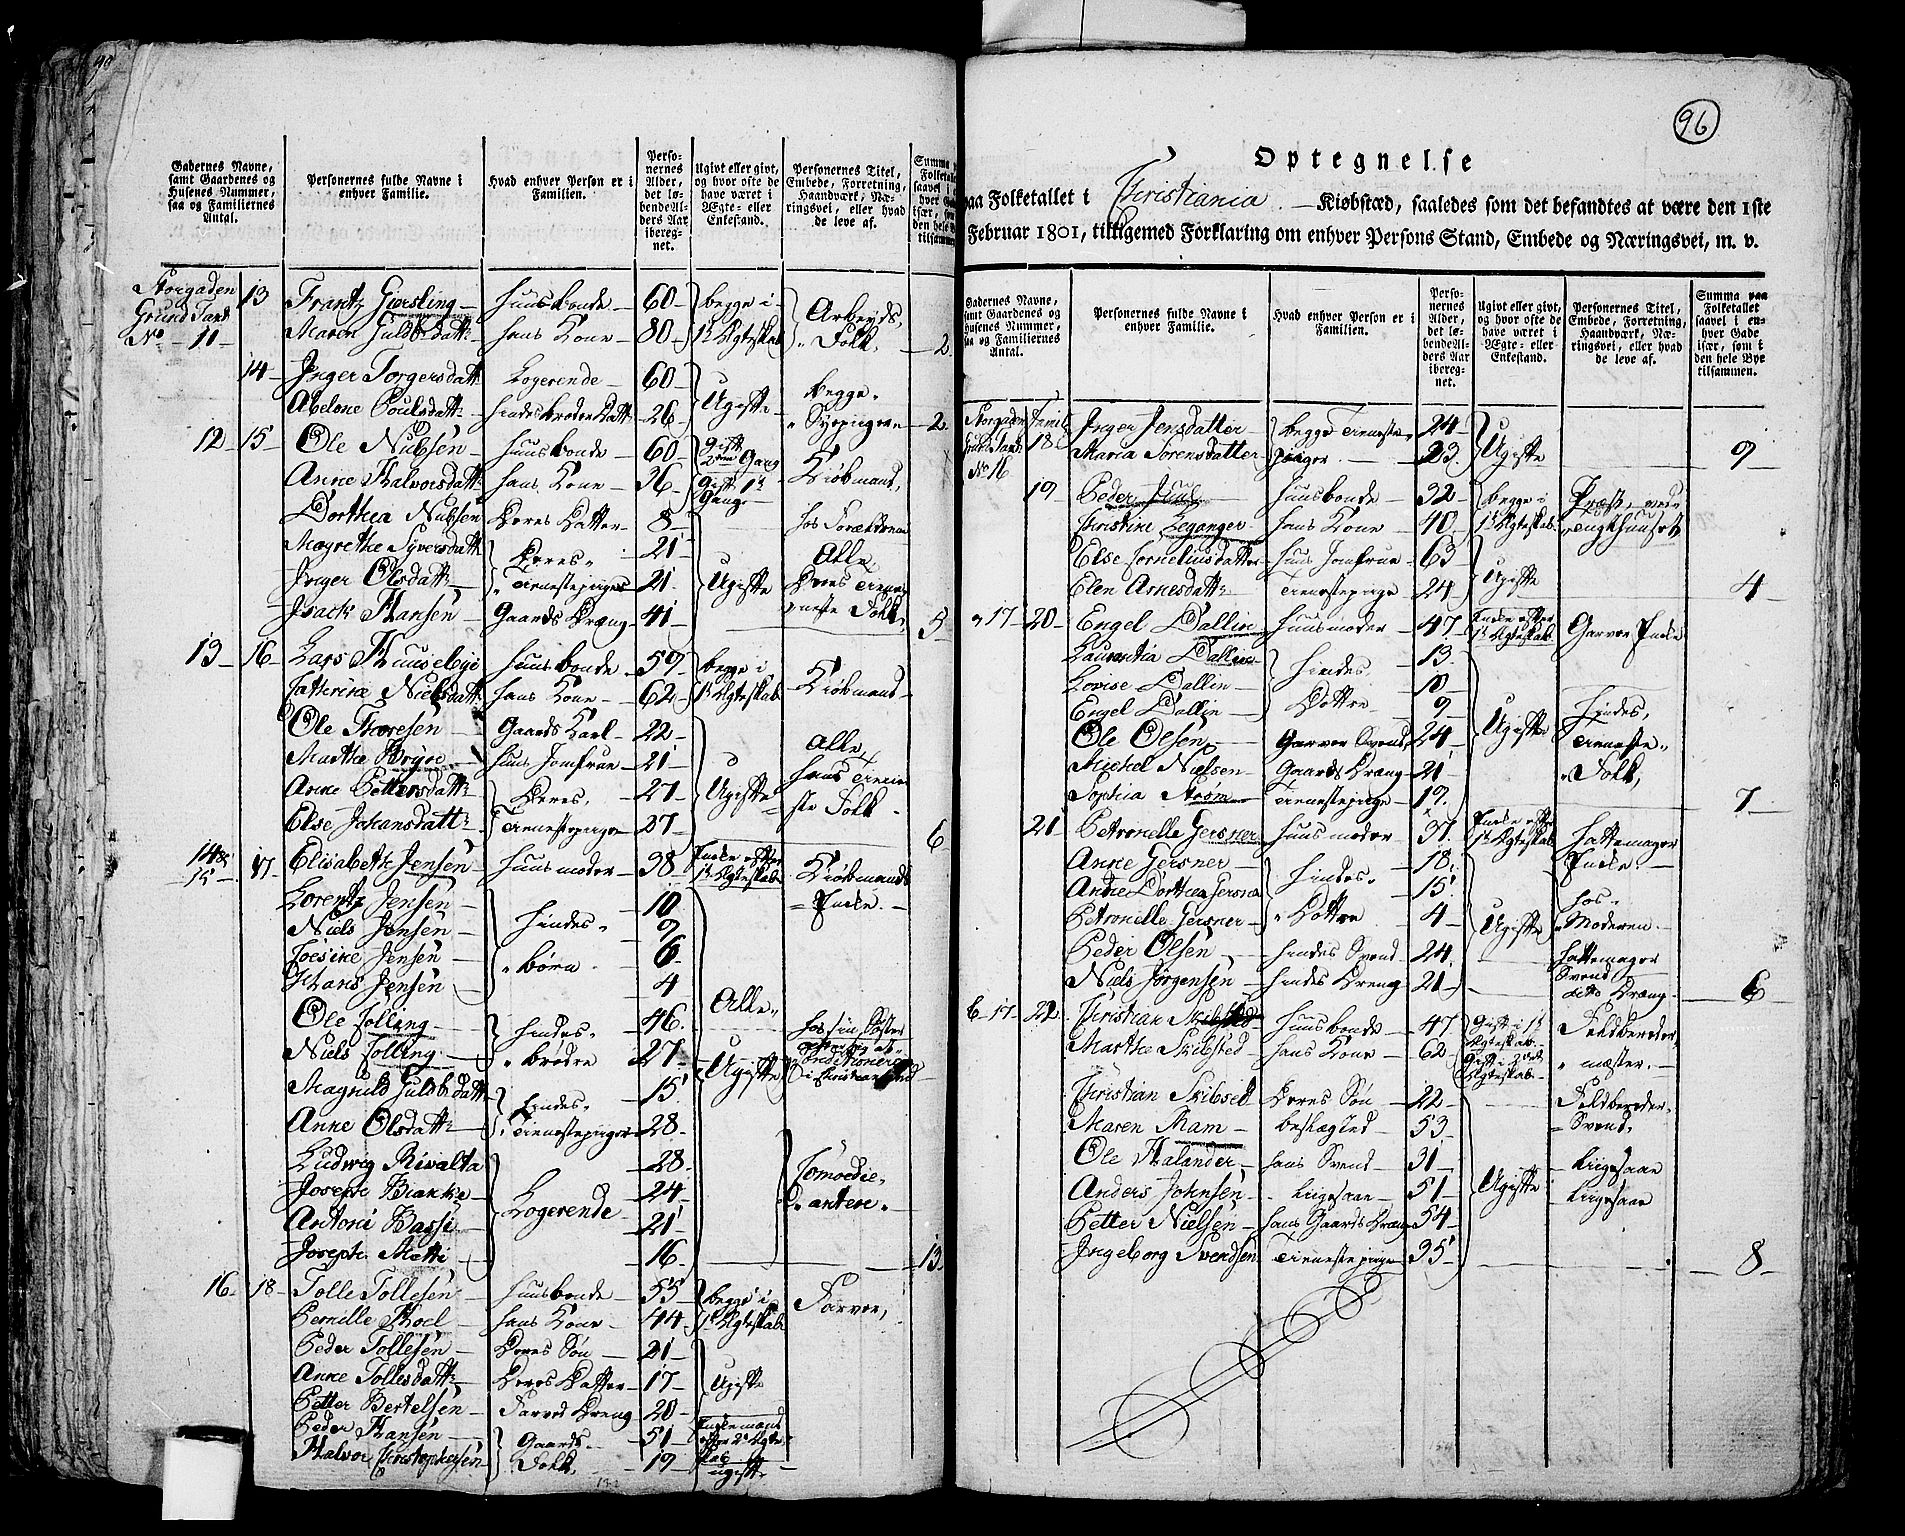 96
Gadernes Navne, samt Gaardenes og Husenes Nummer, saa og Familiernes Antal.
Personernes fulde Navne i enhver Familie.
Hvad enhver Person er i Familien.
Personernes Alder, det løbende Alders Aar iberegnet.
Ugivt eller givt, og hvor ofte de have været i Ægte- eller Enkestand.
Personernes Titel, Embede, Forretning, Haandværk, Næringsvei, eller hvad de leve af.
Storgaden 13 Frantz Giersling Huusbonde 60 begge i Arbeyds
Grund Tax No 11 Maren Guldb:datt: hans Kone 80 1ste Ægteskab Folk 2
14 Inger Torgersdatt: Logerende 60 Ugifte begge
Abelone Poulsdatt: hindes broder Datt: 26 Sypiger 2
12 15 Ole Nielsen Huusbonde 60 Gift 2den Gang Kiøbmand
Anne Halvorsdatt: hans Kone 36 Gift 1ste Gang
Dorthea Nielsen Deres Datter 8 hos Forældrene
Magrethe Syversdatt: Deres 21 Ugifte Alle
Inger Olsdatt: Tienestepiger 21 Deres Tieneste
Isack Hansen Gaards Dreng 41 Folk 5
13 16 Lars Huuseby Huusbonde 59 begge i Kiøbmand
Catherine Nielsdatt: hans Kone 62 1ste Ægteskab
Ole Thoresen Gaards Karl 22 Ugifte Alle
Marthe Bryn Huus Jomfrue 21 hans Tiene
Anne Pettersdatt: Deres 27 ste Folk
Else Johansdatt: Tienestepiger 27 6
14 & 15 17 Elisabeth Jensen Huusmoder 38 Enke efter 1ste Ægteskab Kiøbmands Enke
Lorentz Jensen hindes 10
Niels Jensen 9
Jensen børn 6
Hans Jensen 4
Ole Colling hindes 46 Alle hos sin Søster
Niels Colling brødre 27 Ugifte
Guldb:datt: hindes 15
Anne Olsdatt: Tienestepiger 28
Ludwig Rivalta Logerende 28 Comoedie
Joseph Bianke 24 antere
Antoni Bassi 21
Joseph Motti 16 13
16 18 Tolle Tollesen Huusbonde 55 begge i Farver
Pernille Hoel hans Kone 44 1ste Ægteskab
Peder Tollesen Deres Søn 21 Ugifte
Anne Tollesdatt: Deres Datter 17
Petter Bertelsen Farver Dreng 20
Peder Hansen Gaards 51 Enkemand efter 2det Ægteskab
Halvor Christophersen Folk 19 ugift
Optegnelse
paa Folketallet i Christiania Kiøbstæd, saaledes som det befandtes at være den 1ste
Februar 1801, tilligemed Forklaring om enhver Persons Stand, Embede og Næringsvei, m. v.
Gadernes Navne, samt Gaardenes og Husenes Nummer, saa og Familiernes Antal.
Personernes fulde Navne i enhver Familie.
Hvad enhver Person er i Familien.
Personernes Alder, det løbende Alders Aar iberegnet.
Ugivt eller givt, og hvor ofte de have været i Ægte- eller Enkestand.
Personernes Titel, Embede, Forretning, Haandværk, Næringsvei, eller hvad de leve af.
Summa paa Folketallet saavel i enhver Gade især, som i den hele Bye tilsammen.
Storgaden Famil: 18 Inger Jensdatter begge Tieneste 24 Ugifte
No 16 Maria Sorensdatter piger 23 9
19 Peder Juul Huusbonde 32 begge i Præst ved
Christine Leganger hans Kone 40 1ste Ægteskab Tugthuuset
Else Corneliusdatter Huus Jomfrue 63 Ugifte
Elen Arnesdatt: Tienestepige 24 4
17 20 Engel Dallin Huusmoder 47 Enke efter 1ste Ægteskab Garver Enke
Laurentia Dallin hindes 13
Lovise Dallin Døttre 10
Engel Dallin 9 Ugifte hindes
Ole Olsen Garver Svend 24 Tieneste
Michel Nielsen Gaards Dreng 21 Folk
Sophia Strøm Tienestepige 19 7
21 Petronelle Gersner Huusmoder 37 Enke efter 1ste Ægteskab Hattemager Enke
Anne Gersner hindes 18
Anne Dorthea Gersner 15 hos
Petronelle Gersner Døttre 4 Ugifte Moderen
Peder Olsen hindes Svend 24 Hattemager Svend
Niels Jørgensen hindes Dreng 21 dito Dreng 6
17 22 Christian Skibsted Huusbonde 47 Gift i 1ste Ægteskab Feldbereder
Marthe Skibsted hans Kone 62 Gift i 2det Ægteskab mæster
Christian Skibsted Deres Søn 22 Feldbereder
Maren Ram beslægted 53 Svend
Ole Halander hans Svend 31 Ligesaa
Anders Johnsen Ligesaa 51 Ugifte Ligesaa
Petter Nielsen hans Gaards Dreng 54
Ingeborg Svendsen Tienestepige 35 8